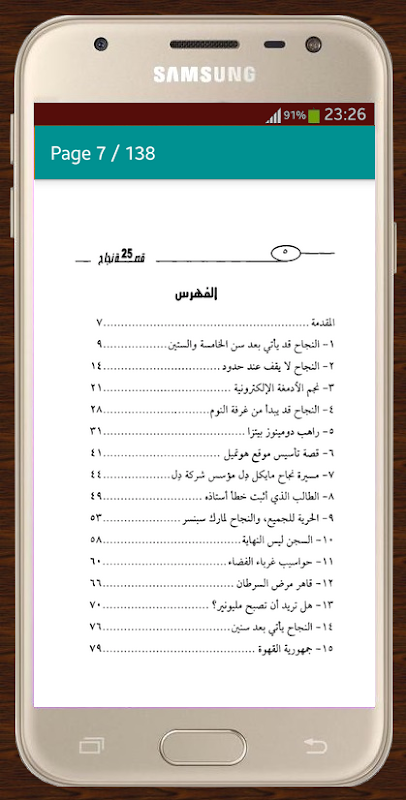 SAMSUNG
91% 23:26
Page 7 / 138
٥
25 قصة نجاح
الفهرس
المقدمة ................................ ٧
١- النجاح قد يأتي بعد سن الخامسة والستين ................ ٩
٢- النجاح لا يقف عند حدود ................ ١٤
٣- نجم الأدمغة الإلكترونية ................ ٢١
٤- النجاح قد يبدأ من غرفة النوم ................ ٢٨
٥- راهب دومينوز بيتزا ................ ٣١
٦- قصة تأسيس موقع هوتميل ................ ٤١
٧- مسيرة نجاح مايكل دِل مؤسس شركة دِل ................ ٤٤
٨- الطالب الذي أثبت خطأ أستاذه ................ ٤٩
٩- الحرية للجميع، والنجاح لمارك سبنسر ................ ٥٣
١٠- السجن ليس النهاية ................ ٥٨
١١- حواسيب غرباء الفضاء ................ ٦٠
١٢- قاهر مرض السرطان ................ ٦٦
١٣- هل تريد أن تصبح مليونير؟ ................ ٧٠
١٤- النجاح يأتي بعد سنين ................ ٧٦
١٥- جمهورية القهوة ................ ٧٩